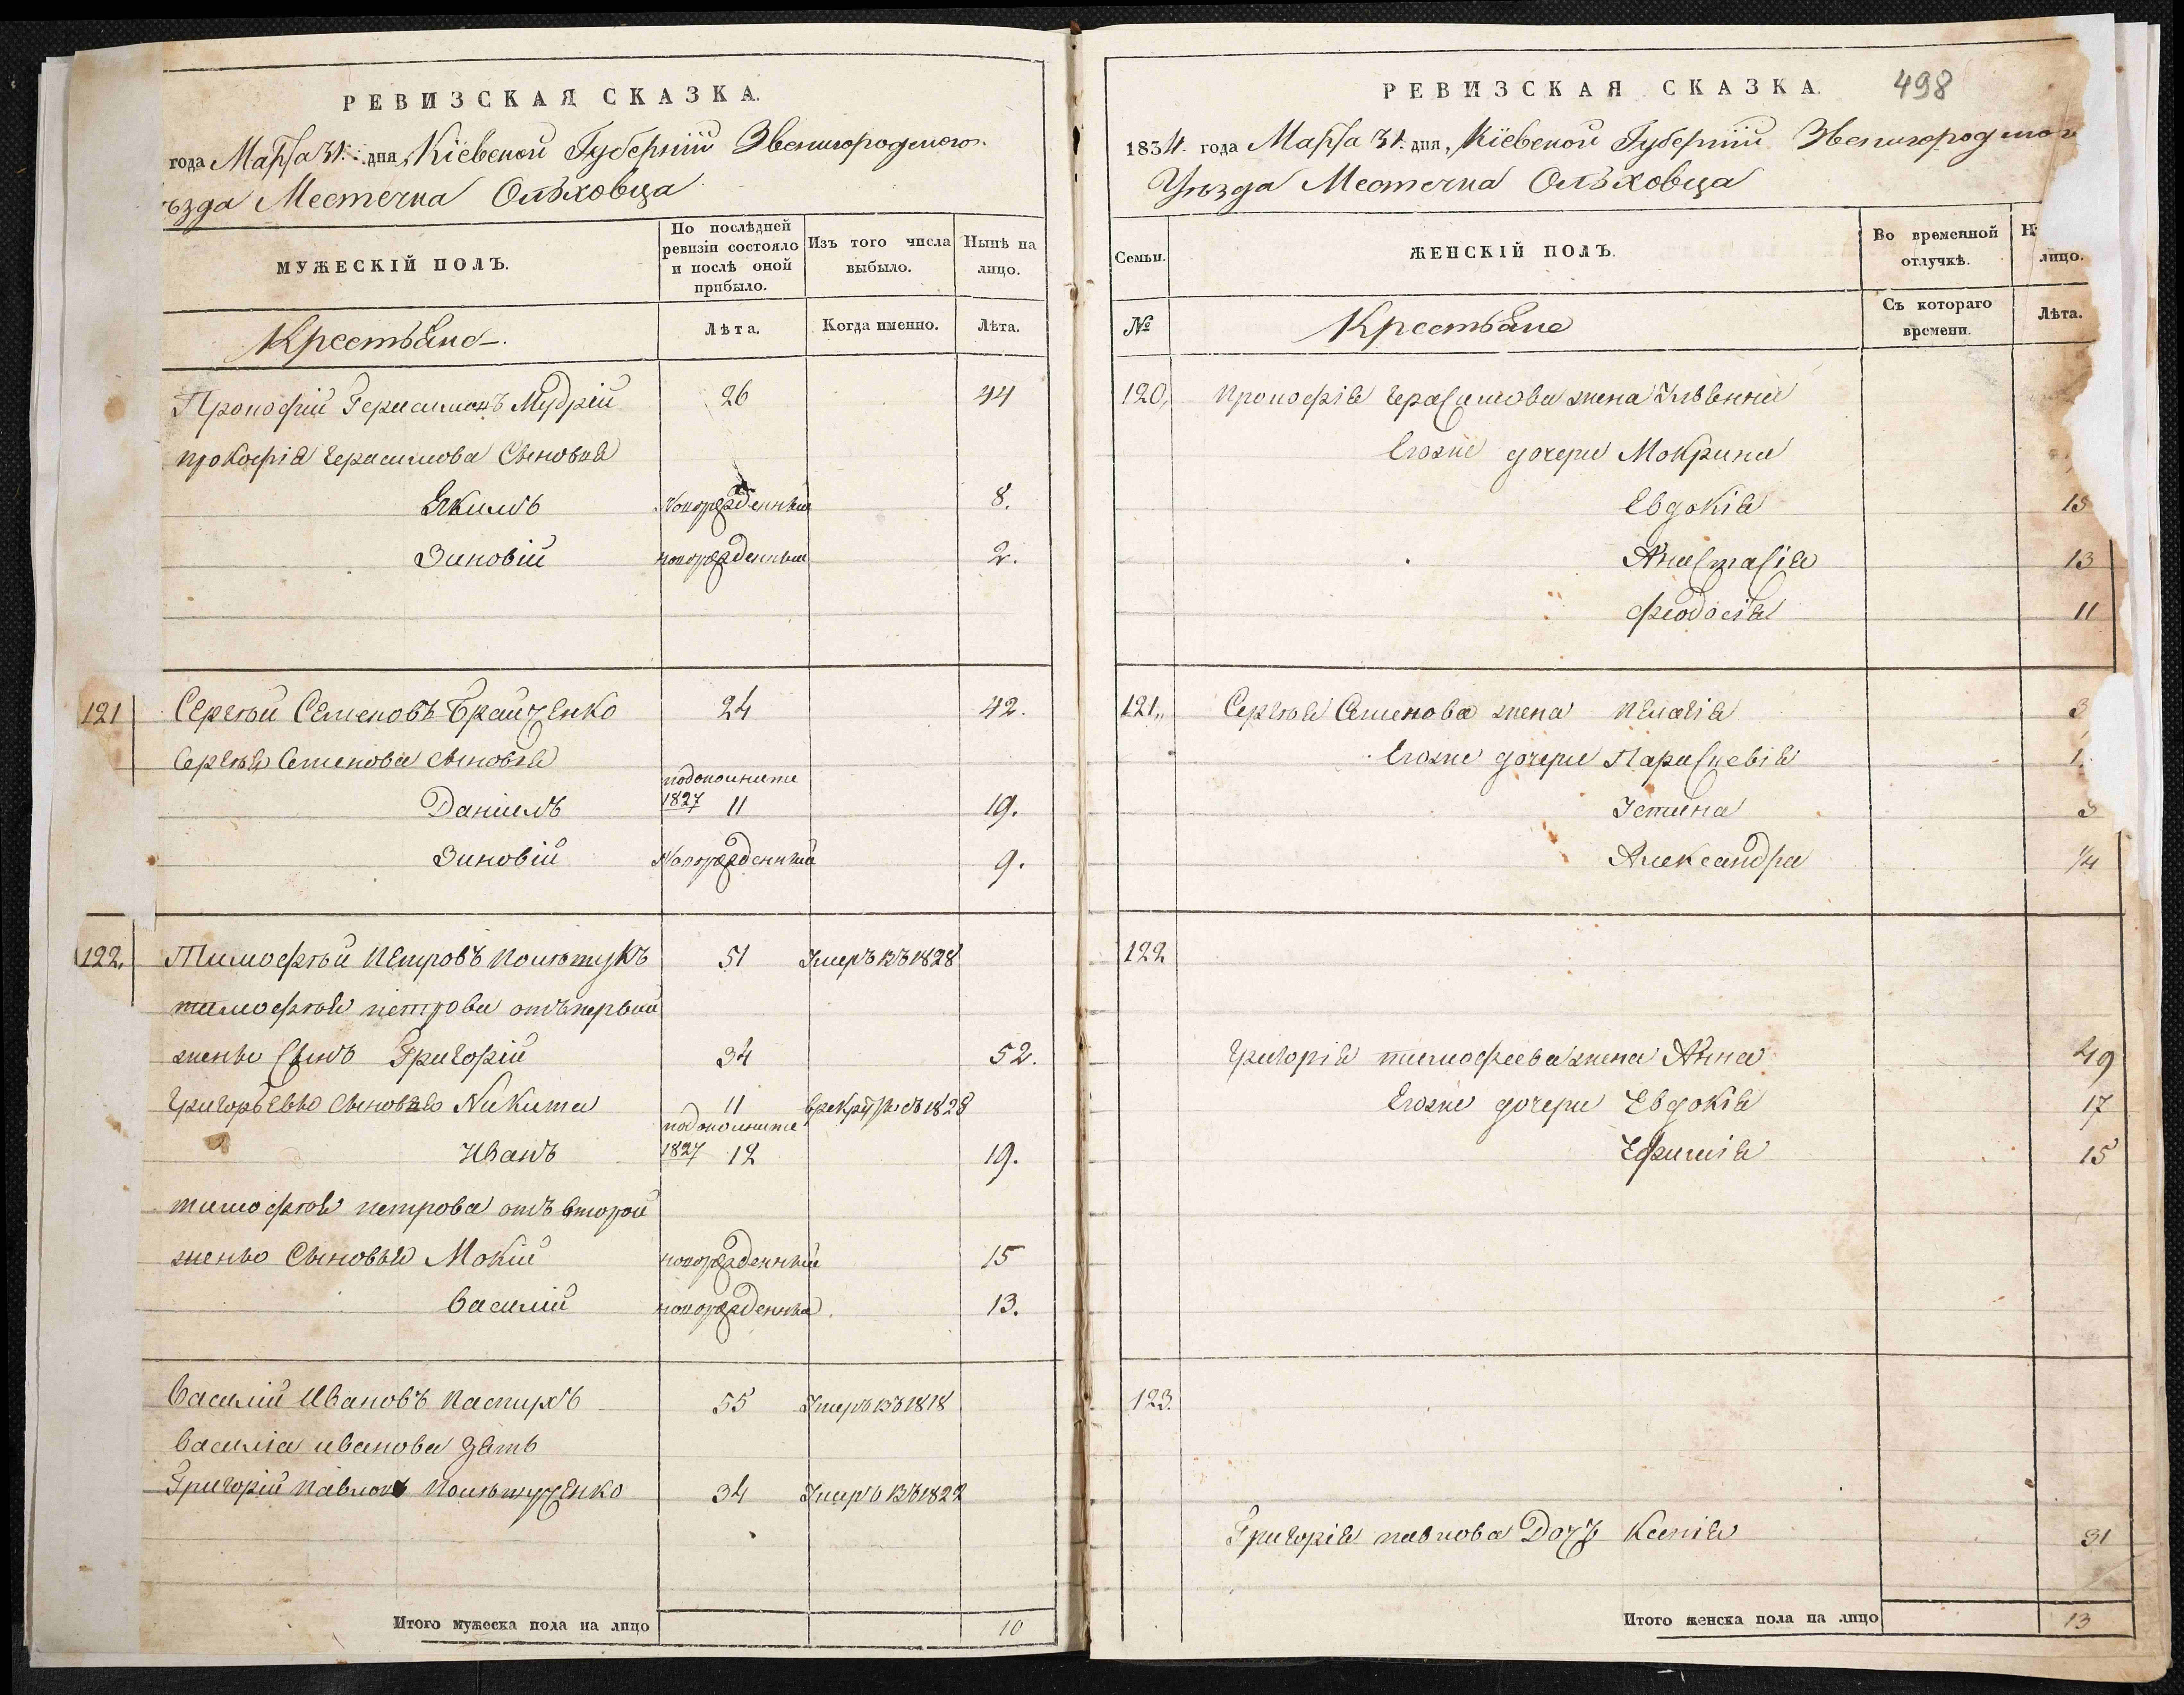 РЕВИЗСКАЯ СКАЗКА.
года Марта 31. дня, Кіевской Губерніи Звенигородского
ѣзда Местечка Ольховца
МУЖЕСКІЙ ПОЛЪ.
По послѣдней ревизіи состояло и послѣ оной прибыло.
Изъ того числа выбыло.
Нынѣ на лицо.
Крестьяне
Лѣта.
Когда именно.
Лѣта.
Прокофій Герасимовъ Мудрій 26 44
прокофія Герасимова Сыновья
Якимъ новорожденный 8.
Зиновій новорожденный 2.
121 Сергѣй Семеновъ Брайченко 24 42.
Сергѣя Семенова сыновья
Даніилъ 1827 11 19.
Зиновій Новорожденный 9.
122, Тимофѣй Петровъ 51 Умеръ въ 1828
тимофѣя петрова отъ первой
жены Сынъ Григорій 34 52.
Григорьевы сыновья Никита 11 1828
Иванъ 1827 12 19.
тимофѣя петрова отъ второй
жены Сыновья Мокій новорожденный 15
Василій новорожденный 13.
Василій Ивановъ 55 Умеръ въ 1818
Василія иванова Зять
Григорій Павловъ 34 Умеръ въ 1822
Итого мужеска пола на лицо 10
РЕВИЗСКАЯ СКАЗКА. 498
1834. года Марта 31. дня, Кіевской Губерніи
Уѣзда Местечка Ольховца
Семьи.
ЖЕНСКІЙ ПОЛЪ.
Во временной отлучкѣ.
лицо.
№
Крестьяне
Съ котораго времени.
Лѣта.
120, Прокофія Герасимова жена Ульянна
Егоже дочери Мокрина
Евдокія 15
Анастасія 13
Феодосія 11
121,, Сергѣя Семенова жена Пелагія 3
Егоже дочери Параскевія 1
Устина
Александра 1/4
122
Григорія тимофеева жена Анна 49
Егоже дочери Евдокія 17
Ефимія 15
123.
Григорія павлова Дочь Ксенія 31
Итого женска пола на лицо 13